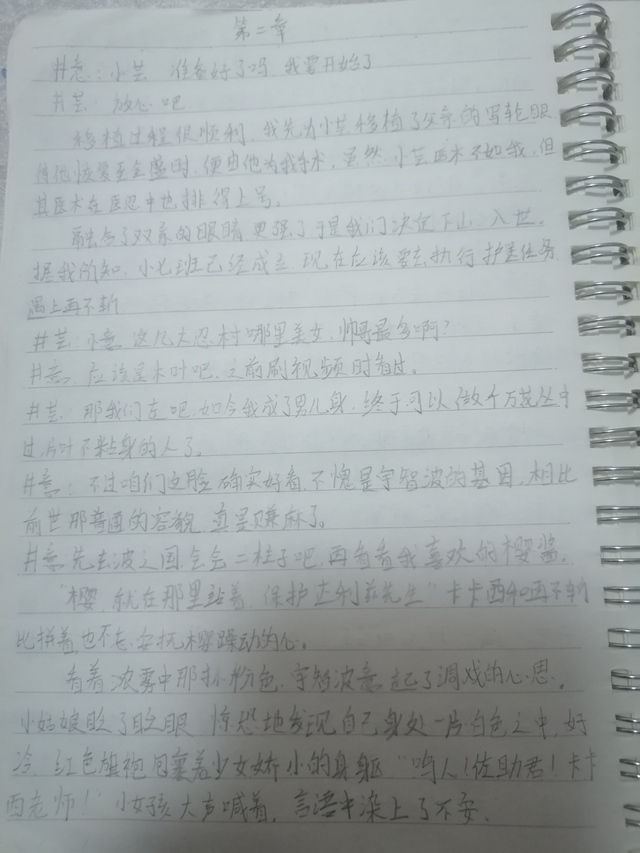 第二章
井意：小芸 准备好了吗 我要开始了
井芸 放心吧
移植过程很顺利，我先为小芸移植了父亲的写轮眼
待他恢复至全盛时，便由他为我手术，虽然小芸医术不如我，但
其医术在医忍中也排得上号。
融合了双亲的眼睛更强了于是我们决定下山入世，
据我所知，小七班已经成立 现在应该要去执行护送任务
遇上再不斩
井芸：小意 这几大忍村哪里美女，帅哥最多啊？
井意：应该是木叶吧，之前刷视频时有过。
井芸：那我们走吧，如今我成了男儿身，终于可以做个万花丛中
过，片叶不粘身的人了。
井意：不过咱们这脸确实好看，不愧是宇智波的基因，相比
前世那普通的容貌 真是赚麻了。
井意：先去波之国会会二柱子吧，再看看我喜欢的樱酱。
“樱，就在那里站着，保护达利兹先生”卡卡西和再不斩
比拼着也不忘安抚樱躁动的心。
看着浓雾中那抹粉色，宇智波意起了调戏的心思。
小姑娘眨了眨眼 惊恐地发现自己身处一片白色之中，好
冷，红色旗袍包裹着少女娇小的身躯“鸣人！佐助君！卡卡
西老师！”小女孩大声喊着，言语中染上了不安．